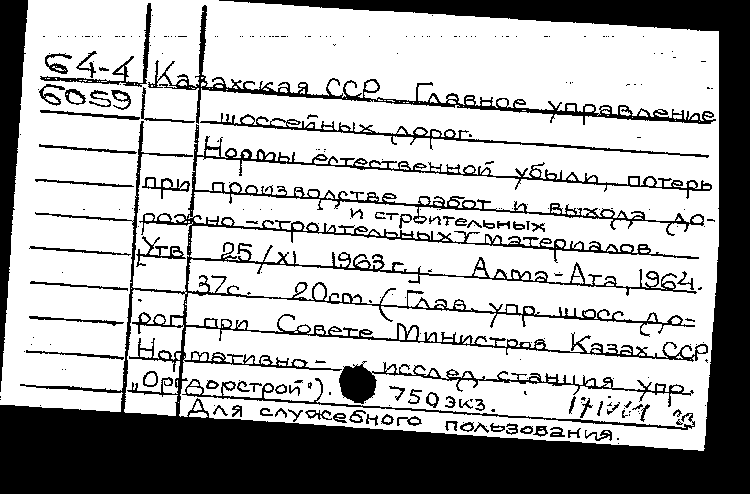 64-4 Казахская ССР. Главное управление
6059
шоссейных дорог.
Нормы естественной убыли, потерь
при производстве работ и выхода до-
и строительных
рожно-строительных материалов.
[Утв. 25/XI 1963 г.]. Алма-Ата, 1964.
37с. 20см. (Глав. упр. шосс. до-
рог при Совете Министров Казах. ССР.
Нормативно-исслед. станция упр.
"Оргдорстрой"). 750 экз.
Для служебного пользования.